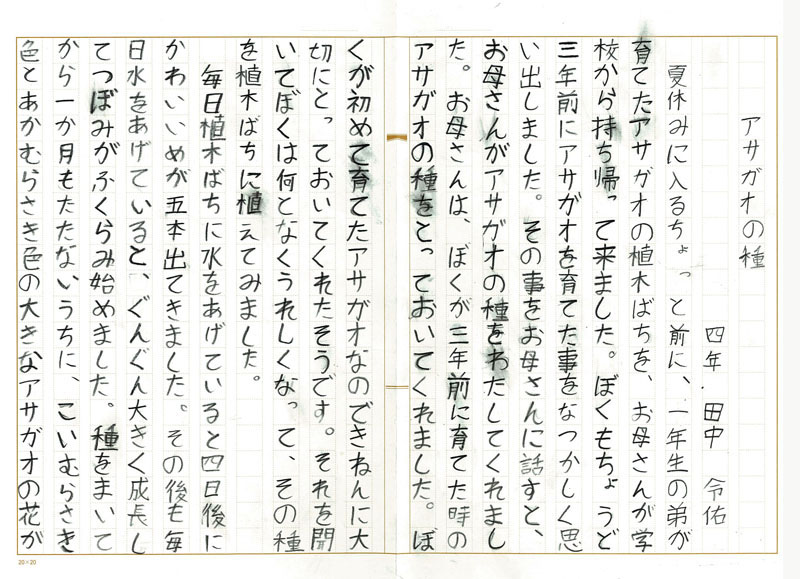 アサガオの種
四年 田中 令佑
夏休みに入るちょっと前に、一年生の弟が
育てたアサガオの植木ばちを、お母さんが学
校から持ち帰って来ました。ぼくもちょうど
三年前にアサガオを育てた事をなつかしく思
い出しました。その事をお母さんに話すと、
お母さんがアサガオの種をわたしてくれまし
た。お母さんは、ぼくが三年前に育てた時の
アサガオの種をとっておいてくれました。ぼ
くが初めて育てたアサガオなのできねんに大
切にとっておいてくれたそうです。それを開
いてぼくは何となくうれしくなって、その種
を植木ばちに植えてみました。
毎日植木ばちに水をあげていると四日後に
かわいいめが五本出てきました。その後も毎
日水をあげていると、ぐんぐん大きく成長し
てつぼみがふくらみ始めました。種をまいて
から一か月もたたないうちに、こいむらさき
色とあかむらさき色の大きなアサガオの花が
20×20